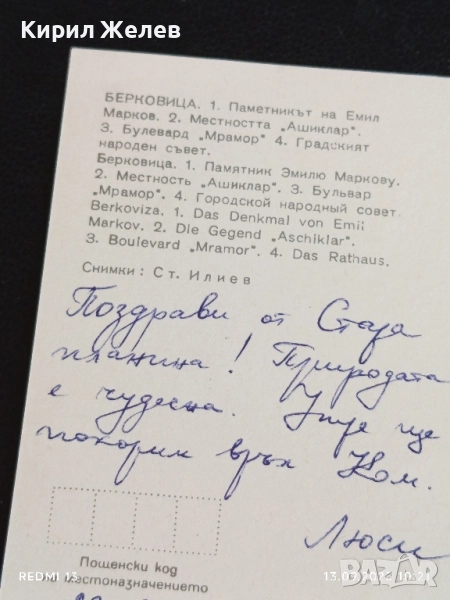 Кирил Желев
БЕРКОВИЦА. 1. Паметникът на Емил
Марков. 2. Местността „Ашиклар".
3. Булевард „Мрамор" 4. Градският
народен съвет.
Берковица. 1. Памятник Эмилю Маркову.
2. Местность „Ашиклар". 3. Бульвар
„Мрамор". 4. Городской народный совет.
Berkoviza. 1. Das Denkmal von Emil
Markov. 2. Die Gegend „Aschiklar".
3. Boulevard „Mramor". 4. Das Rathaus.
Снимки: Ст. Илиев
Поздрави от Стара
планина! Природата
е чудесна. Утре ще
покорим връх Ком.
Люси
Пощенски код
на местоназначението
REDMI 13
13.07.2025 10:21
bazar